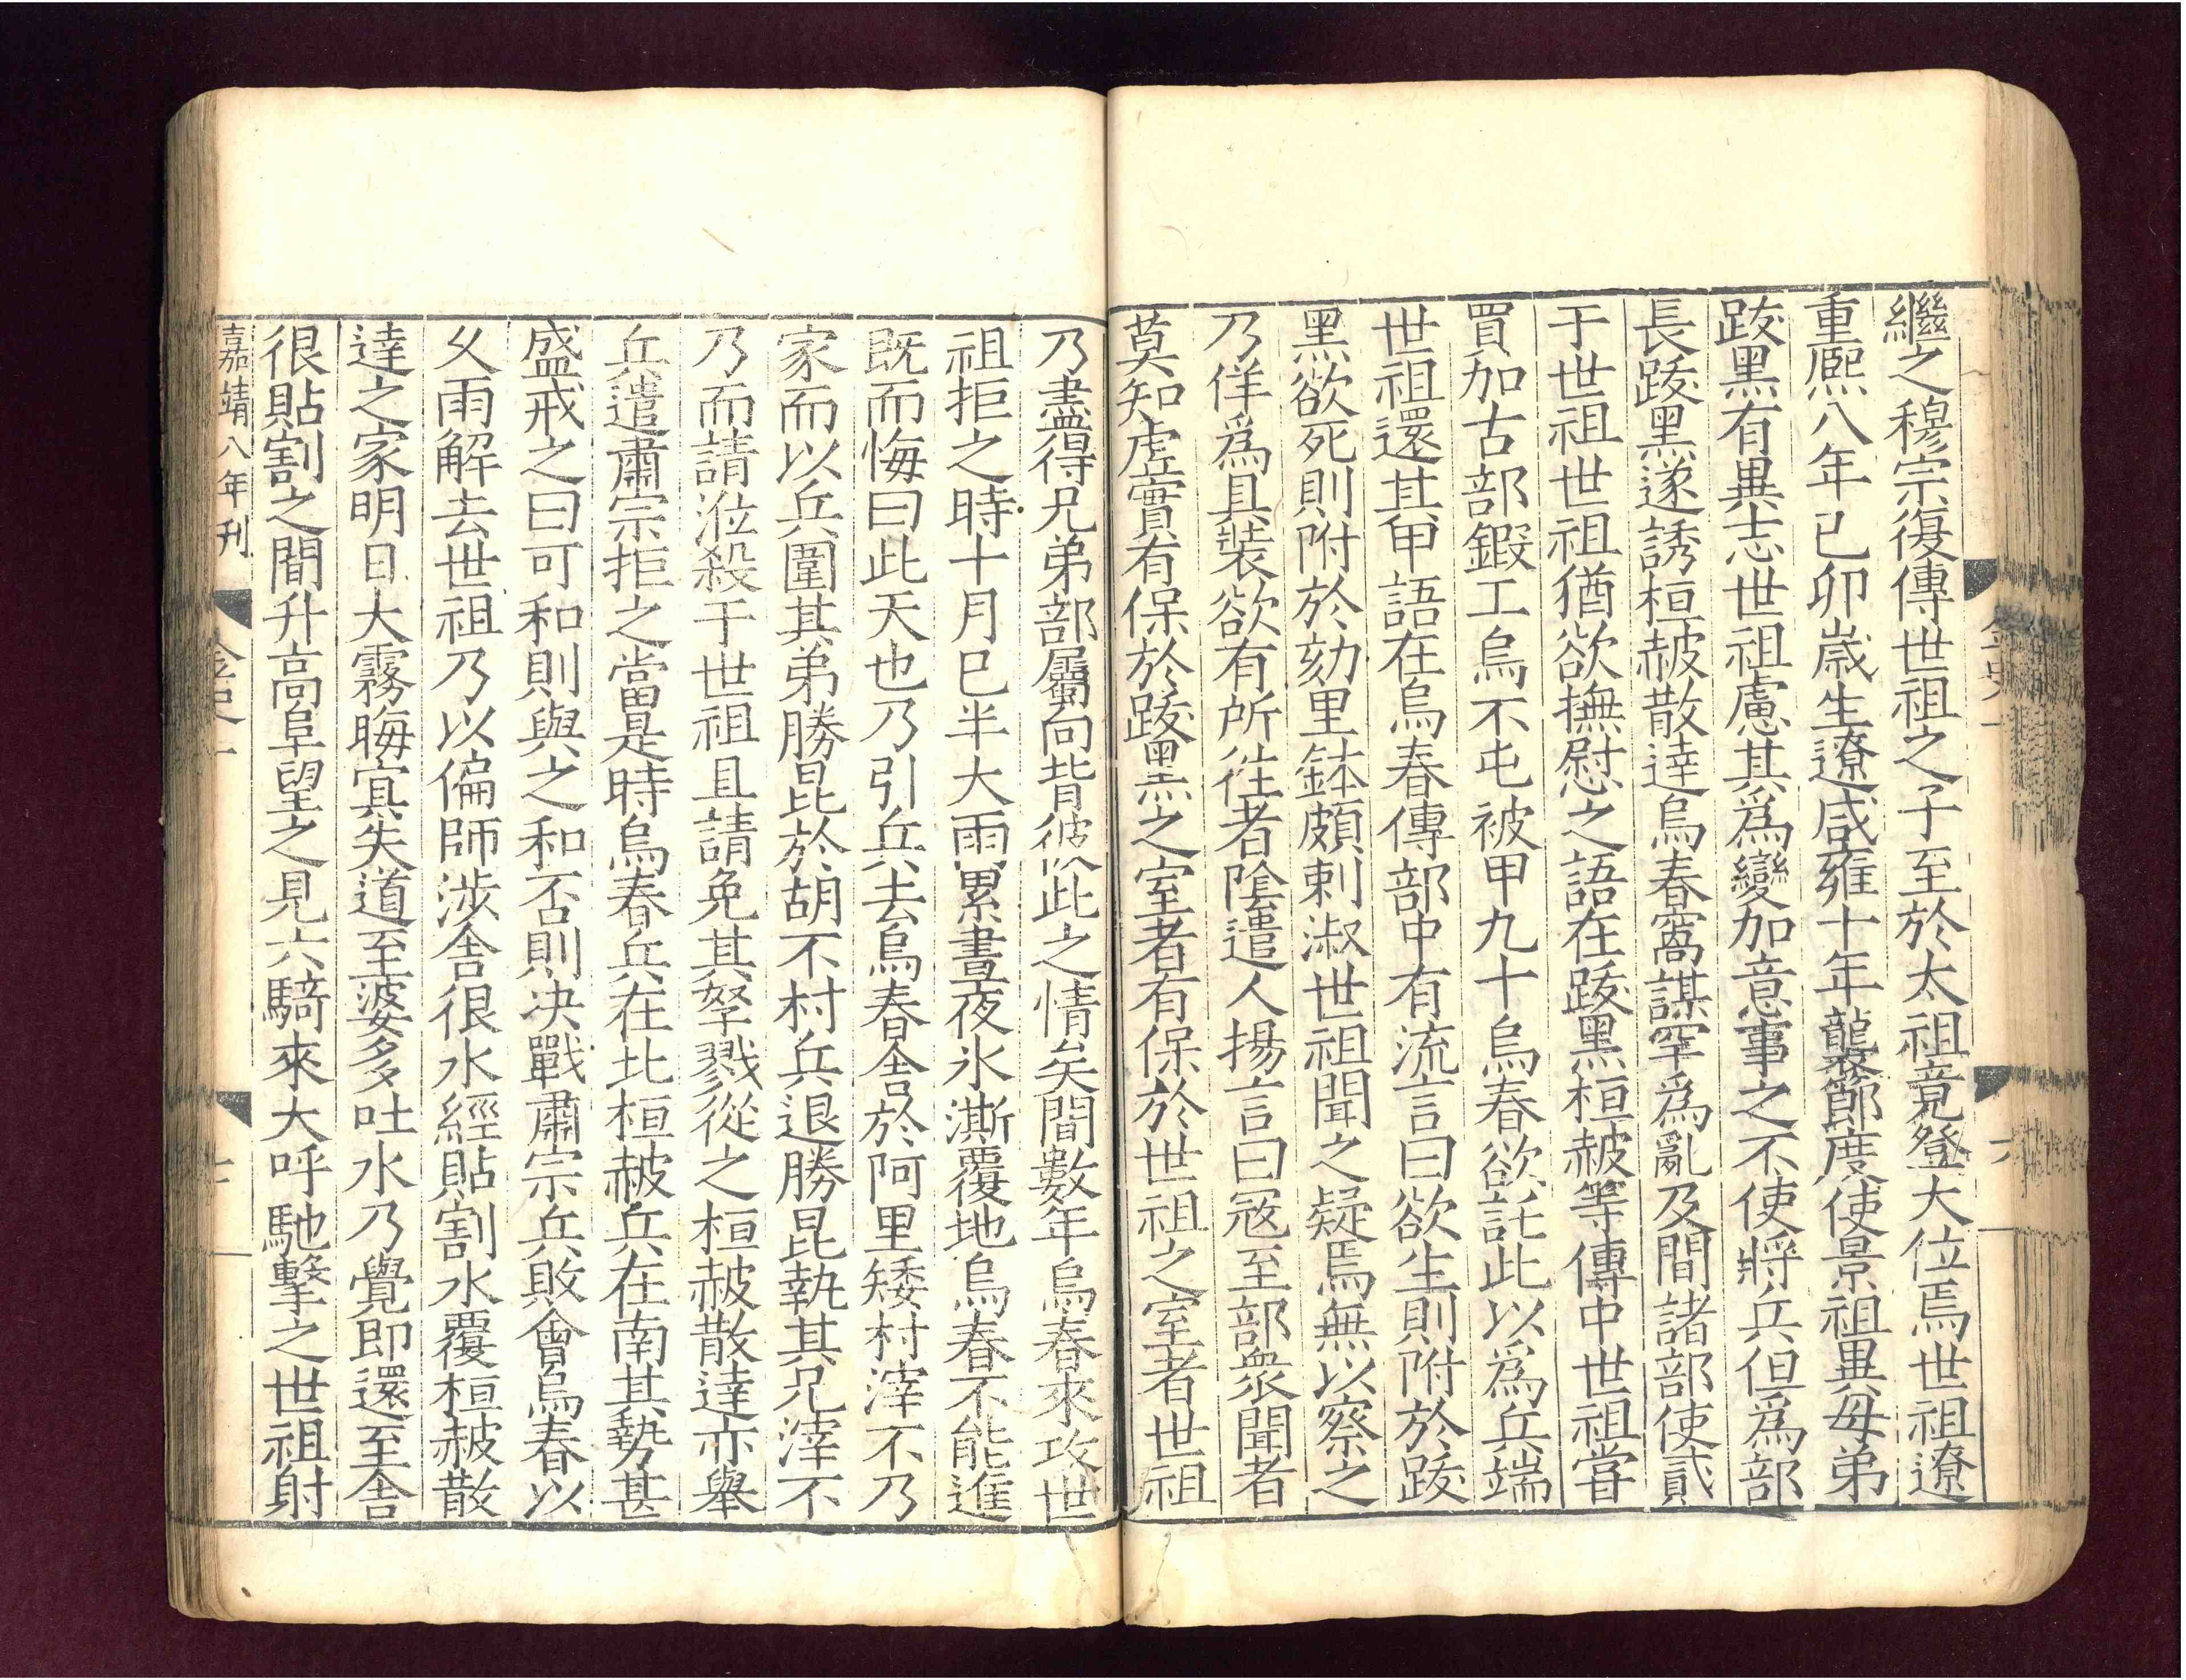 繼之穆宗復傳世祖之子至於太祖竟登大位焉世祖遼
重熙八年己卯歲生遼咸雍十年襲節度使景祖異母弟
跋黑有異志世祖慮其爲變加意事之不使將兵但爲部
長跋黑遂誘桓赧散達烏春窩謀罕爲亂及間諸部使貳
于世祖世祖猶欲撫慰之語在跋黑桓赧等傳中世祖甞
買加古部鍜工烏不屯被甲九十烏春欲託此以爲兵端
世祖還其甲語在烏春傳部中有流言曰欲生則附於跋
黑欲死則附於劾里鉢頗剌淑世祖聞之疑焉無以察之
乃佯爲具裝欲有所徃者隂遣人揚言曰冦至部衆聞者
莫知虛實有保於跋黑之室者有保於世祖之室者世祖
乃盡得兄弟部屬向背彼此之情矣間數年烏春來攻世
祖拒之時十月巳半大雨累晝夜氷澌覆地烏春不能進
既而悔曰此天也乃引兵去烏春舍於阿里矮村滓不乃
家而以兵圍其弟勝昆於胡不村兵退勝昆執其兄滓不
乃而請涖殺于世祖且請免其孥戮從之桓赧散達亦舉
兵遣肅宗拒之當是時烏春兵在北桓赧兵在南其勢甚
盛戒之曰可和則與之和否則决戰肅宗兵敗會烏春以
乆雨解去世祖乃以偏師涉舍很水經貼割水覆桓赧散
達之家明日大霧晦㝠失道至婆多吐水乃覺即還至舍
很貼割之間升高阜望之見六騎來大呼馳擊之世祖射
嘉靖八年刊
金史一
七